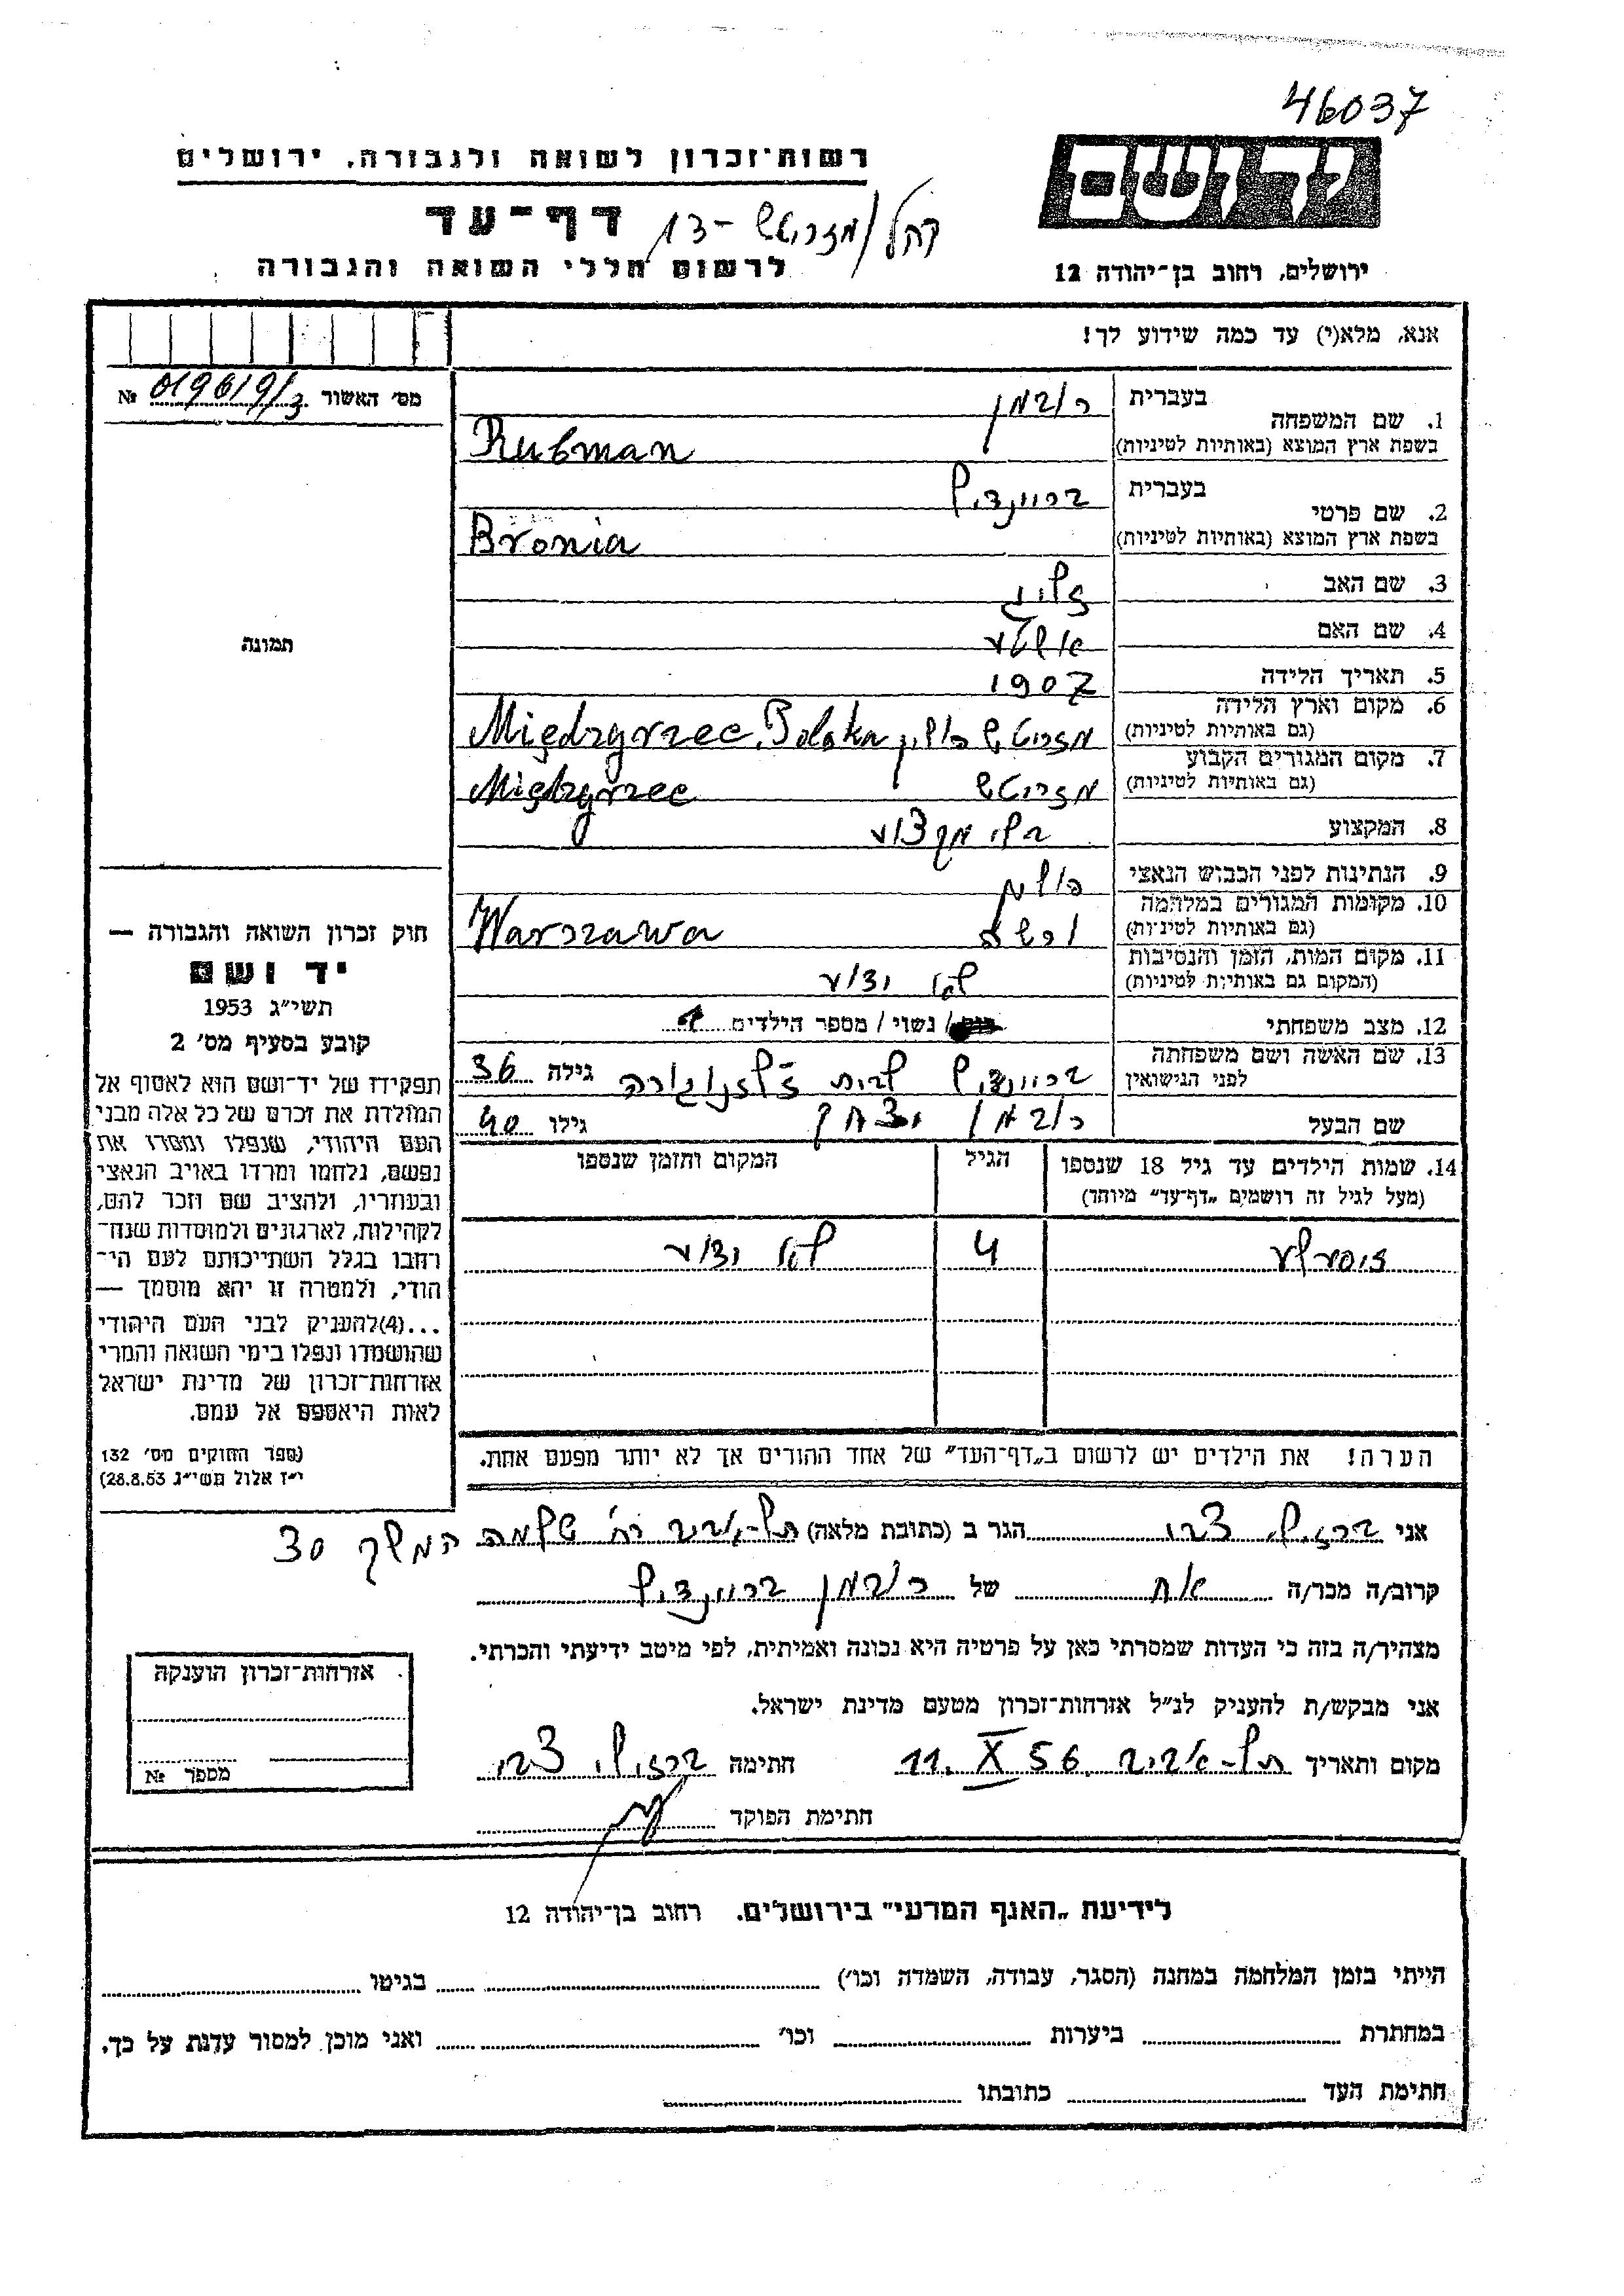 46037
יד ושם
רשות־זכרון לשואה ולגבורה, ירושלים
דף־עד
קהל/מזריטש - 13
לרשום חללי השואה והגבורה
ירושלים, רחוב בן־יהודה 12
אנא, מלא(י) עד כמה שידוע לך!
מס׳ האשור 019619/3 №
תמונה
חוק זכרון השואה והגבורה —
יד ושם
תשי״ג 1953
קובע בסעיף מס׳ 2
תפקידו של יד־ושם הוא לאסוף אל
המולדת את זכרם של כל אלה מבני
העם היהודי, שנפלו ומסרו את
נפשם, נלחמו ומרדו באויב הנאצי
ובעוזריו, ולהציב שם וזכר להם,
לקהילות, לארגונים ולמוסדות שנח־
רחבו בגלל השתייכותם לעם הי־
הודי, ולמטרה זו יהא מוסמך —
...(4)להעניק לבני העם היהודי
שהושמדו ונפלו בימי השואה והמרי
אזרחות־זכרון של מדינת ישראל
לאות היאספם אל עמם.
(ספר החוקים מס׳ 132
י״ז אלול תשי״ג 28.8.53)
בעברית
1. שם המשפחה רובמן
בשפת ארץ המוצא (באותיות לטיניות) Rubman
בעברית
2. שם פרטי בריינדיל
בשפת ארץ המוצא (באותיות לטיניות) Bronia
3. שם האב זליג
4. שם האם
5. תאריך הלידה 1907
6. מקום וארץ הלידה מזריטש פולין Międzyrzec, Polska
(גם באותיות לטיניות)
7. מקום המגורים הקבוע מזריטש Międzyrzec
(גם באותיות לטיניות)
8. המקצוע בלי מקצוע
9. הנתינות לפני הכבוש הנאצי פולנית
10. מקומות המגורים במלחמה ורשה Warszawa
(גם באותיות לטיניות)
11. מקום המות, הזמן והנסיבות לא ידוע
(המקום גם באותיות לטיניות)
12. מצב משפחתי / נשוי / מספר הילדים 1
13. שם האשה ושם משפחתה בריינדיל לבית גילה 36
לפני הנישואין
שם הבעל רובמן יצחק גילו 40
14. שמות הילדים עד גיל 18 שנספו הגיל המקום והזמן שנספו
(מעל לגיל זה רושמים „דף־עד״ מיוחד)
4 לא ידוע
הערה! את הילדים יש לרשום ב„דף־העד״ של אחד ההורים אך לא יותר מפעם אחת.
אני ברזילי צבי הגר ב (כתובת מלאה) תל-אביב רח׳ שלמה המלך 30
קרוב/ה מכר/ה אח של רובמן בריינדיל
מצהיר/ה בזה כי העדות שמסרתי כאן על פרטיה היא נכונה ואמיתית, לפי מיטב ידיעתי והכרתי.
אני מבקש/ת להעניק לנ״ל אזרחות־זכרון מטעם מדינת ישראל.
מקום ותאריך תל-אביב 11. X 56 חתימה ברזילי צבי
חתימת הפוקד
אזרחות־זכרון הוענקה
מספר №
לידיעת „האגף המדעי״ בירושלים. רחוב בן־יהודה 12
הייתי בזמן המלחמה במחנה (הסגר, עבודה, השמדה וכו׳) בגיטו
במחתרת ביערות וכו׳ ואני מוכן למסור עדות על כך.
חתימת העד כתובתו